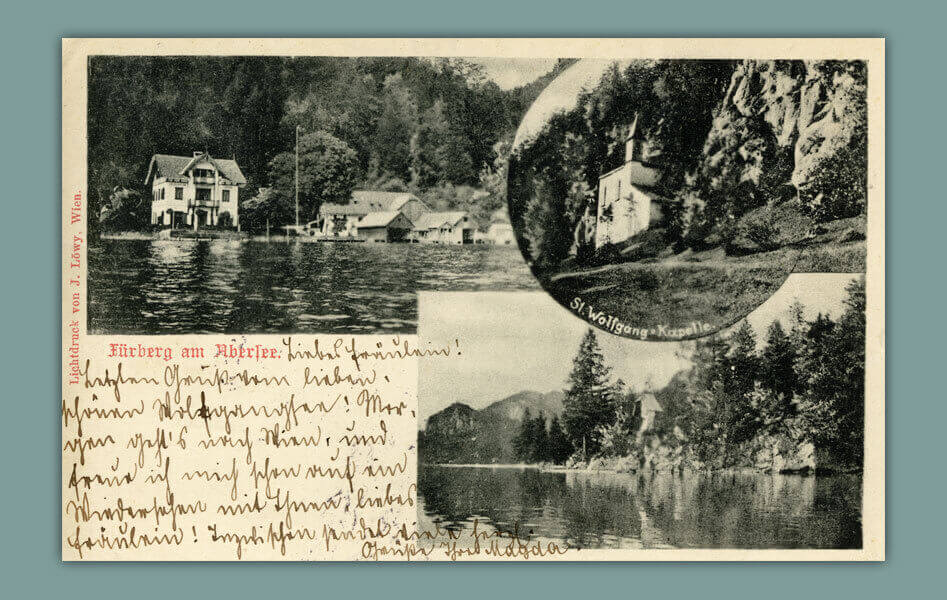 Lichtdruck von J. Löwy, Wien.
St. Wolfgang-Kapelle
Fürberg am Abersee.
Liebes Fräulein!
Letzten Gruß vom lieben,
schönen Wolfgangsee! Mor-
gen geht's nach Wien, und
freue ich mich schon auf ein
Wiedersehen mit Ihnen liebes
Fräulein! Inzwischen sendet viele herzl.
Grüße Ihre Magda.